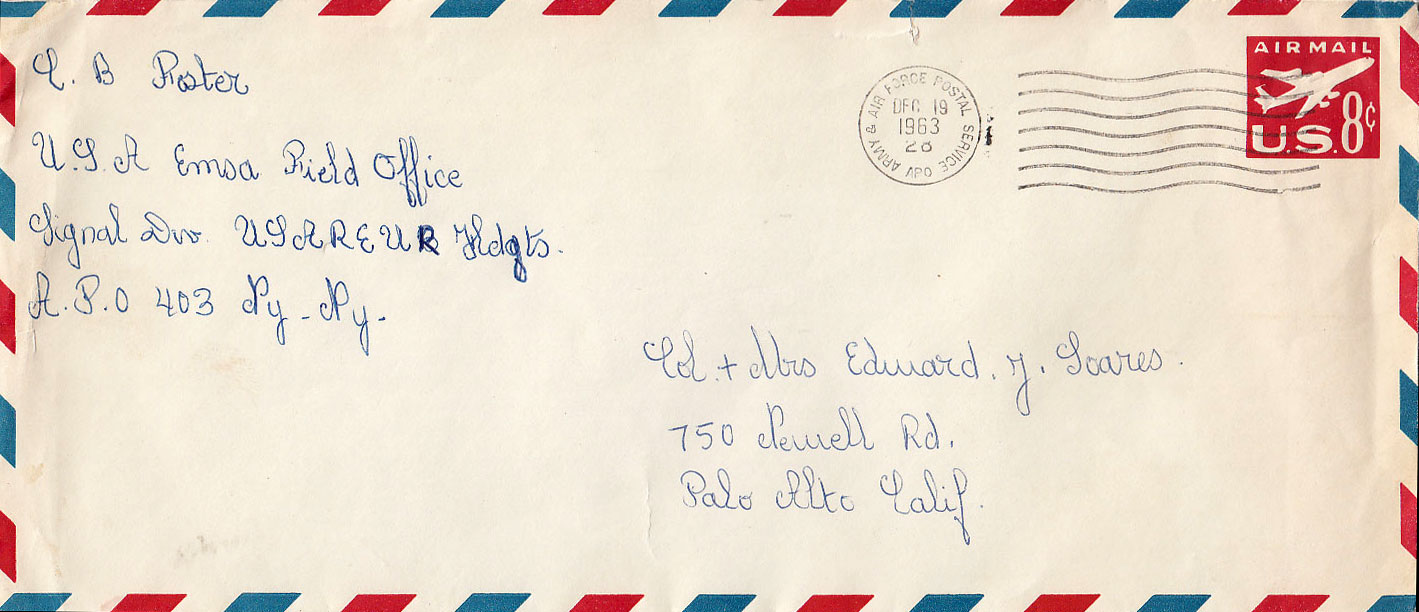 C. B Foster
U.S.A Emsa Field Office
Signal Div. USAREUR Hdqts.
A.P.O 403 Ny - Ny.
ARMY & AIR FORCE POSTAL SERVICE APO
DEC 19
1963
28
AIR MAIL
U.S. 8¢
Col. + Mrs Edward. J. Soares.
750 Newell Rd.
Palo Alto Calif.